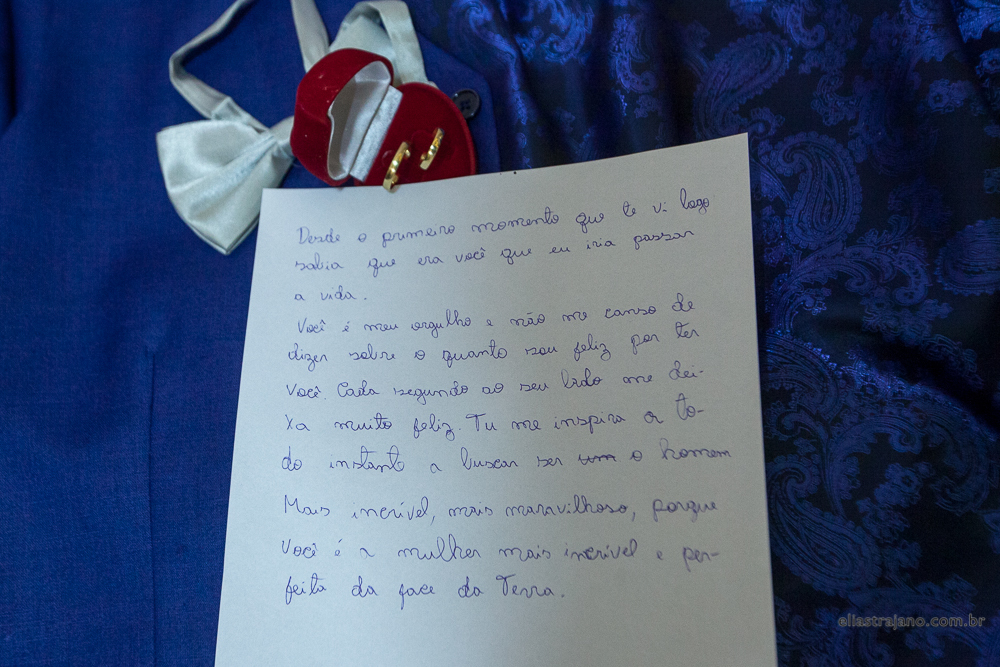 Desde o primeiro momento que te vi logo
sabia que era você que eu iria passar
a vida.
Você é meu orgulho e não me canso de
dizer sobre o quanto sou feliz por ter
você. Cada segundo ao seu lado me dei-
xa muito feliz. Tu me inspira a to-
do instante a buscar ser um o homem
Mais incrível, mais maravilhoso, porque
você é a mulher mais incrível e per-
feita da face da Terra.
eliastrajano.com.br